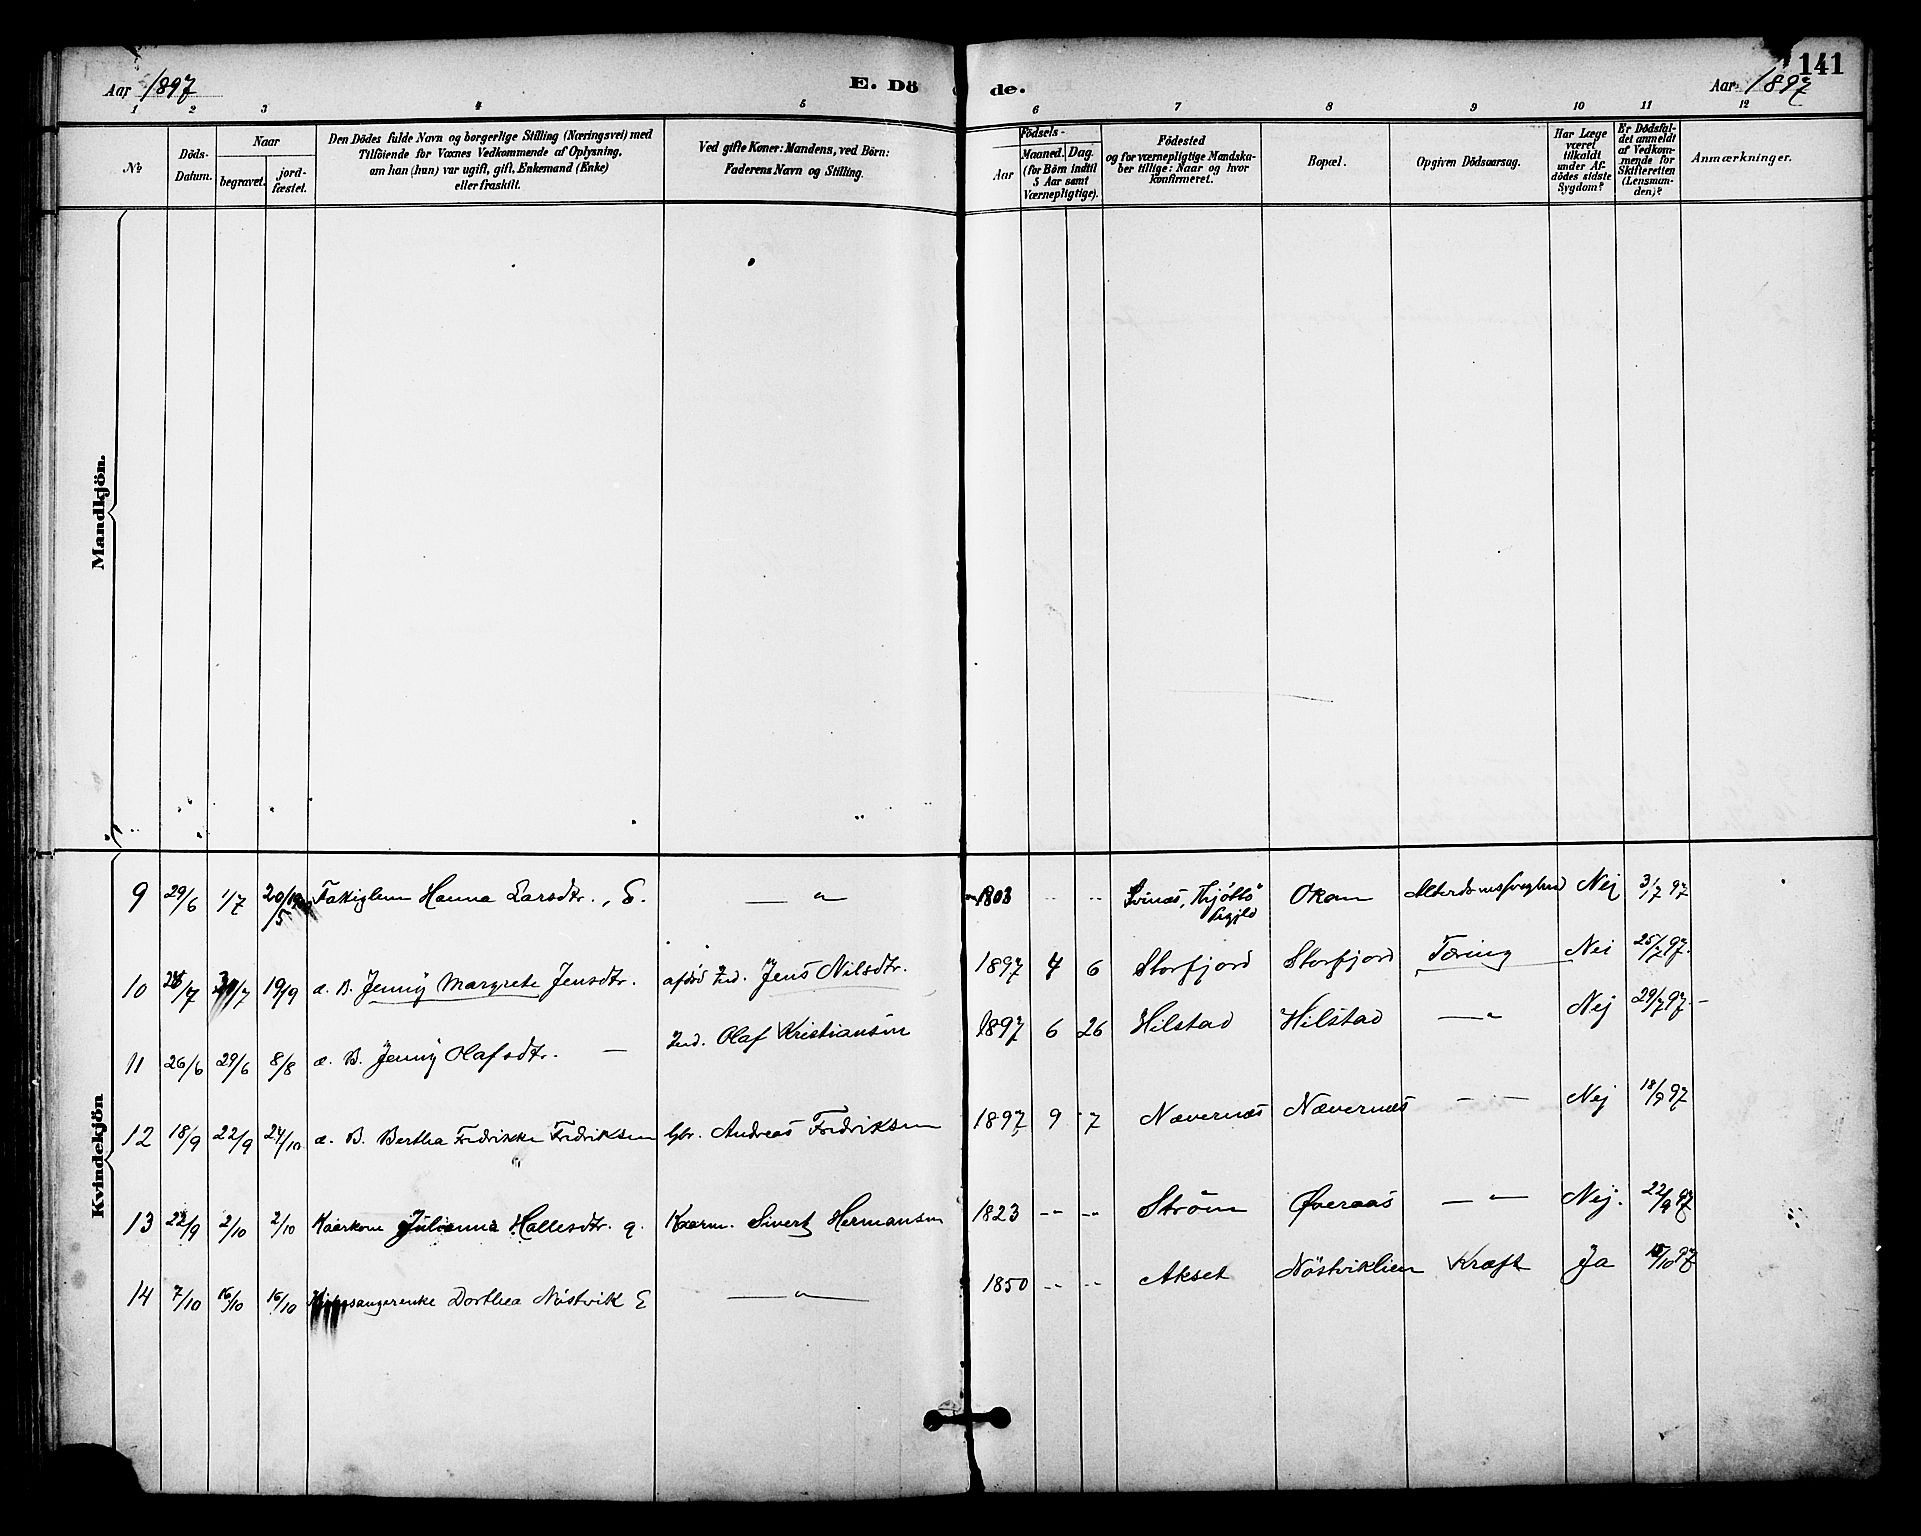 141
Aar 1897
E. Dö de.
Aar 1897
1 2 3 4 5 6 7 8 9 10 11 12
№
Döds-Datum.
Naar
begravet.
jord-fæstet.
Den Dödes fulde Navn og borgerlige Stilling (Næringsvei) med
Tilföiende for Voxnes Vedkommende af Oplysning,
om han (hun) var ugift, gift, Enkemand (Enke)
eller fraskilt.
Ved gifte Koner: Mandens, ved Börn:
Faderens Navn og Stilling.
Födsels-
Aar
Maaned. Dag.
(for Børn indtil
5 Aar samt
Værnepligtige).
Födested
og for værnepligtige Mandska-
ber tillige: Naar og hvor
konfirmeret.
Bopæl.
Opgiven Dödsaarsag.
Har Læge
været
tilkaldt
under Af-
dödes sidste
Sygdom?
Er Dödsfal-
det anmeldt
af Vedkom-
mende for
Skifteretten
(Lensman-
den)?
Anmærkninger.
Mandkjön.
Kvindekjön
9 29/6 1/7 Hanna Larsdtr., E. — " — 1803 " " Okan Nej 3/7 97
10 /7 /7 19/9 æ. B. Jenny Margrete Jensdtr. Ind. Jens Nilsdtr. 1897 4 6 Storfjord Storfjord Tæring Nei 25/7 97.
11 26/6 29/6 8/8 æ. B. Jenny Olafsdtr. — Ind. Olaf Kristiansen 1897 6 26 Hilstad Hilstad — " Nej 29/7 97 —
12 18/9 22/9 24/10 æ. B. Bertha Fredrikke Fredriksen Gbr. Andreas Fredriksen 1897 9 7 Nævernæs Nævernæs — — Nej 18/9 97
13 22/9 2/10 2/10 Kaarkone Julianna Hallesdtr. g. Kaarm. Sivert Hermansen 1823 " " Strøm Øveraas — " — Nej. 22/9 97
14 7/10 16/10 16/10 Dorthea Nöstvik E — " — 1850 " " Akset Nöstviklien Kræft Ja /10 97